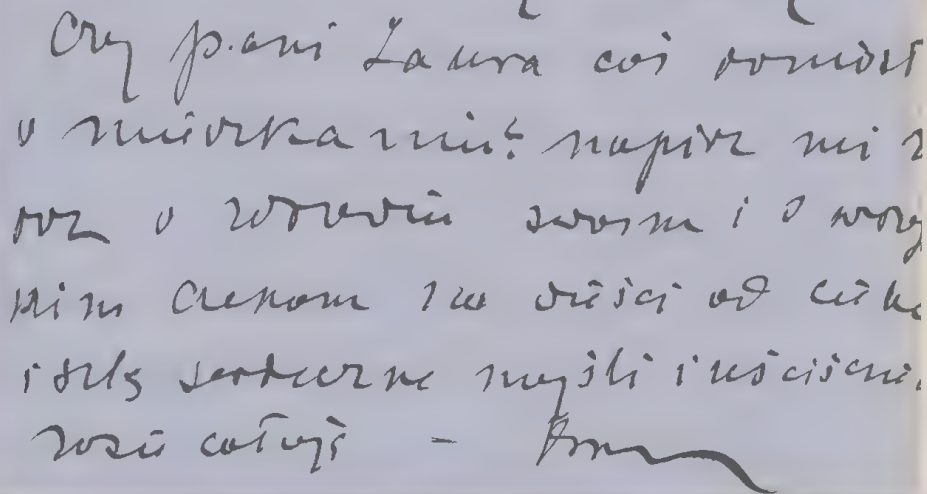 Czy pani Laura coś pomyśl
o mieszkaniu? napisz mi
o zdrowiu swoim i o wszy
kim czekam na wieści od ciebie
i ślę serdeczne myśli i uściśnie
całuję –